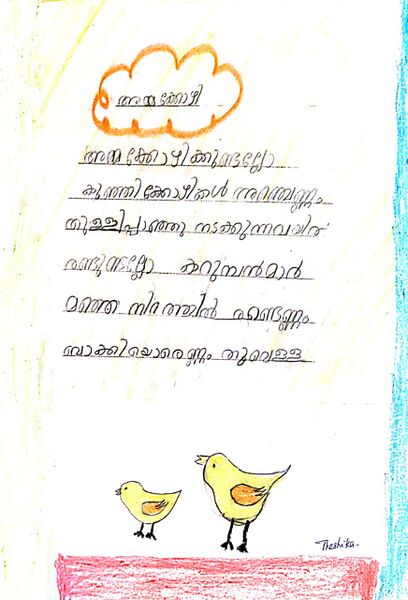 അമ്മക്കോഴി
അമ്മക്കോഴിക്കുണ്ടല്ലോ
കുഞ്ഞിക്കോഴികൾ അഞ്ചെണ്ണം
തുള്ളിപ്പാഞ്ഞു നടക്കുന്നവയിൽ
രണ്ടുണ്ടല്ലോ കറുമ്പൻമാർ
മഞ്ഞ നിറത്തിൽ രണ്ടെണ്ണം
ബാക്കിയൊരെണ്ണം തൂവെള്ള
Theshika.